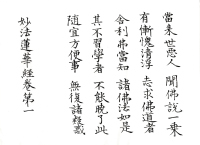 當来世悪人　聞佛説一乗
有慚愧清浄　志求佛道者
舎利弗當知　諸佛法如是
其不習學者　不能暁了此
随宜方便事　無復諸疑惑
妙法蓮華経巻第一